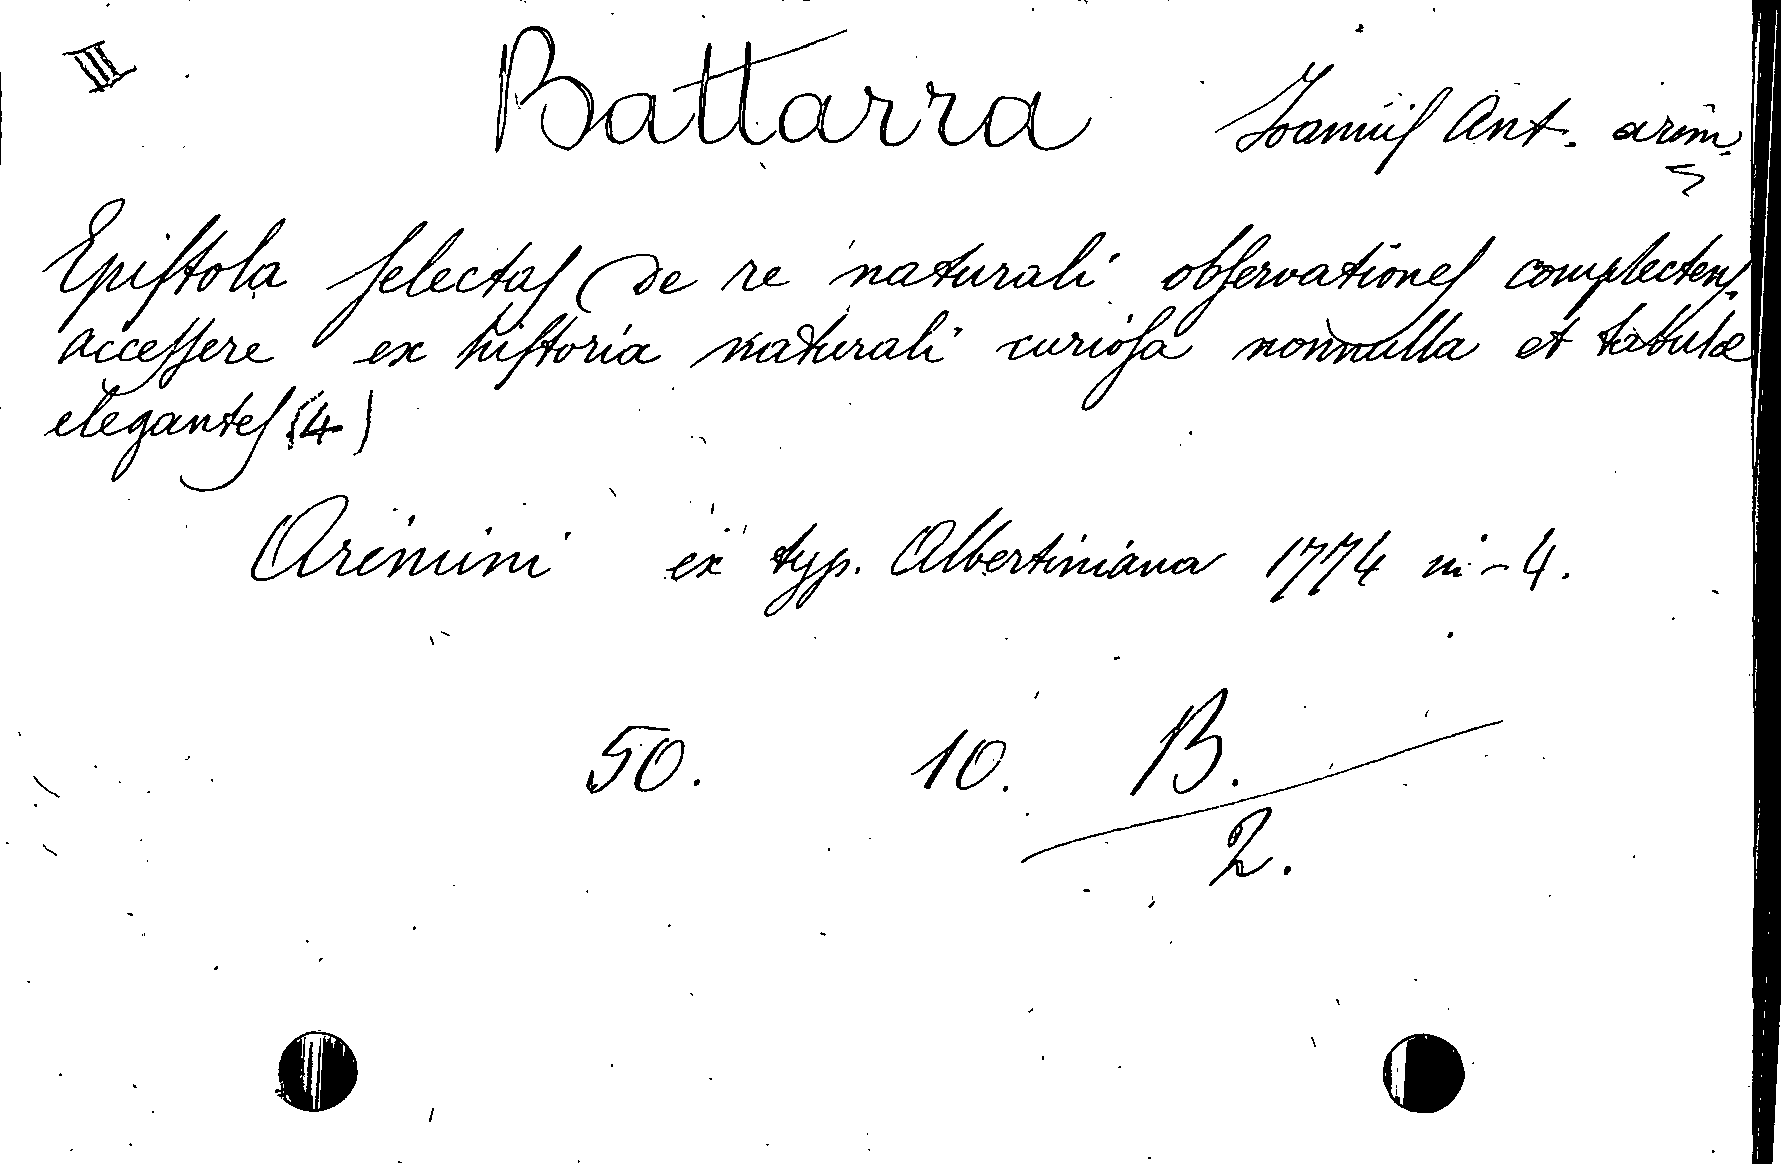 III
Battarra Ioannis Ant. arim.
Epistola selectas de re naturali observationes complectens.
accessere ex historia naturali curiosa nonnulla et tabulæ
elegantes (4)
Arimini ex typ. Albertiniana 1774 in-4.
50. 10. B.
2.